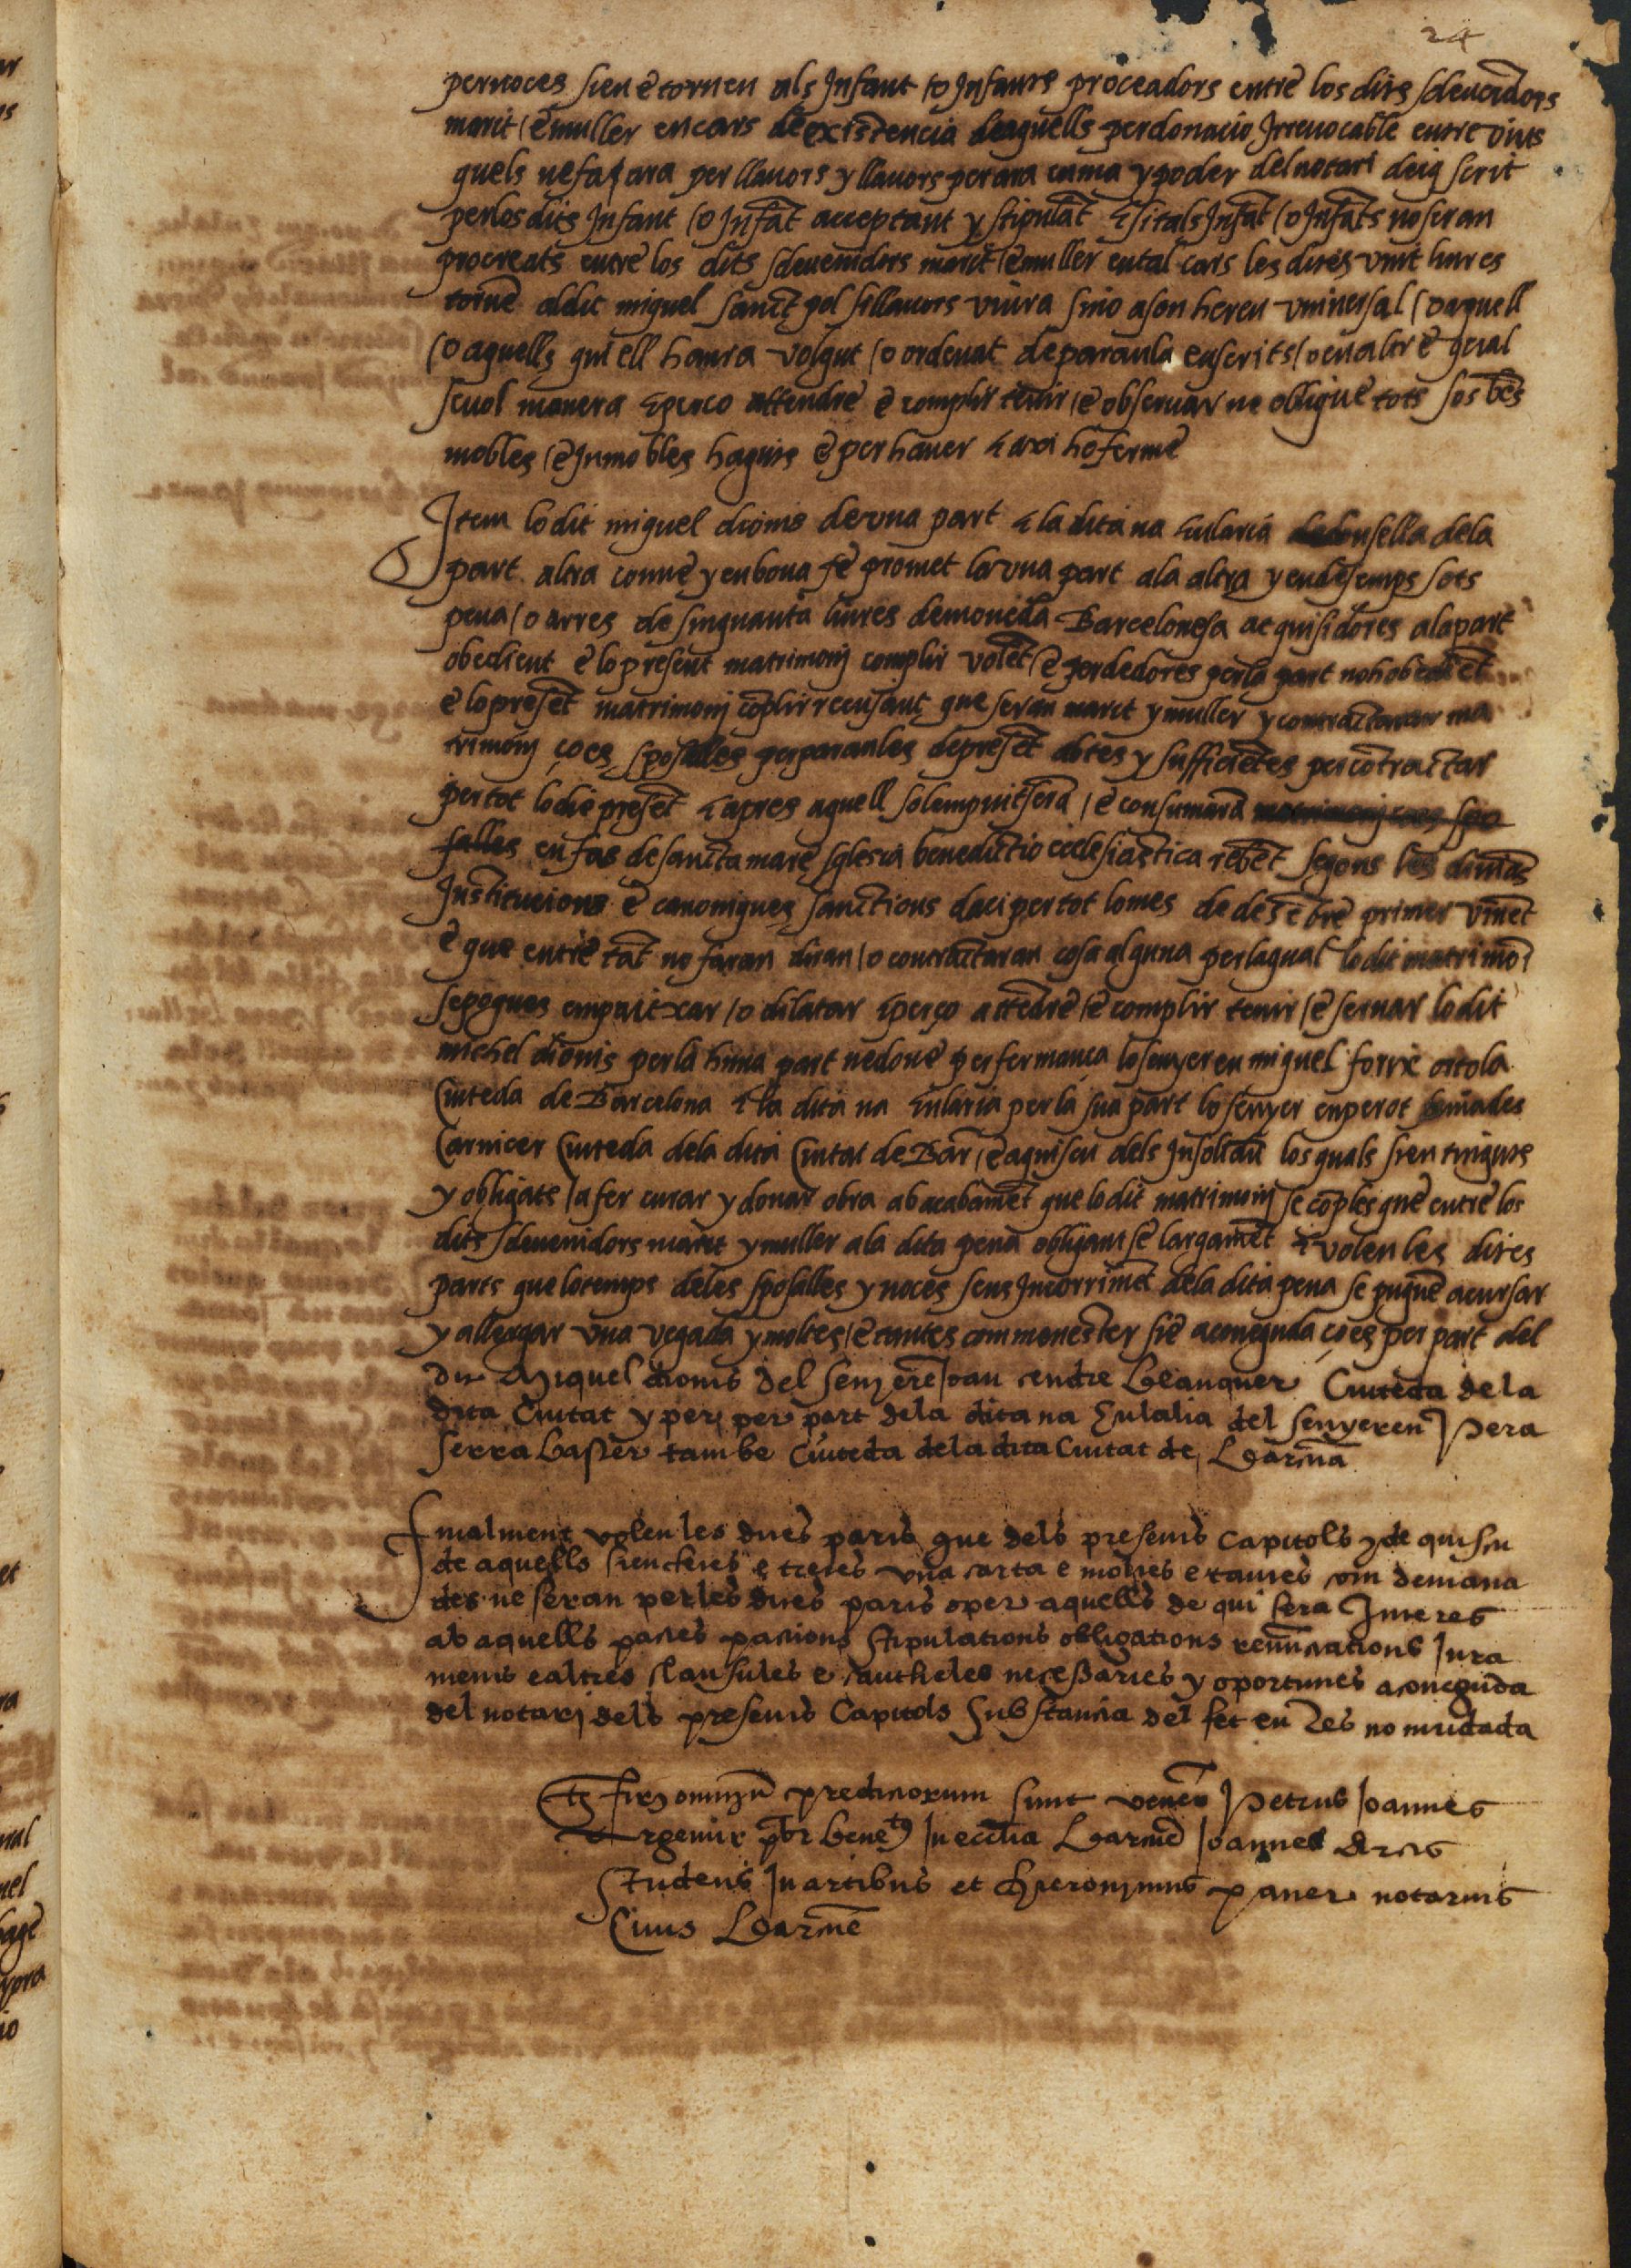 24
per noces sien e tornen als Infant /o Infants proceadors entre los dits sdevenidors
marit /e muller en cars de existencia de aquells per donacio Irrevocable entre vius
quels ne fa /ara per llavors y llavors per ara en ma y poder del notari deig scrit
per los dits Infant /o Infāt acceptant y stipulāt E si tals Infāt /o Infāts no seran
procreats entre los dits sdevenidors marit /e muller en tal cars les dites vuit liures
torne al dit miquel sanct pol si llavors viura sino a son hereu universal /o aquell
/o aquells qui ell haura volgut /o ordenat de paraula en scrits /o en altre qual
sevol manera E perço attendre e complir tenir /e observar ne oblique tots sos bēs
mobles /e Inmobles haguts e per haver E axi ho ferme
Item lo dit miquel dionis de una part E la dita na Eularia donsella dela
part altra conve y en bona fe promet la una part ala altra y endesemps sots
pena /o arres de sinquanta liures de moneda Barcelonesa acquisidores ala part
obedient e lo present matrimonj complir volēt /e perdedores per la part no hobediēt
e lo presēt matrimonj cōplir recusant que seran marit y muller y contractaran ma
trimonj ço es sposalles per paraules de presēt abtes y sufficiētes per cōtractar
per tot lo die presēt E apres aquell solempnitserā /e consumarā matrimonj ço es spo
salles en fas de sancta mare sglesia benedictio ecclesiastica rebēt segons les divinas
Institucions e canoniques sanctions daci per tot lo mes de desēbre primer vinēt
e que entre tāt no faran diran /o contractaran cosa alguna per la qual lo dit matrimoī
se pogues empaitxar /o dilatar E perço attēdre /e complir tenir /e servar lo dit
michel dionis per la huna part ne done per fermança lo senyer en miquel forrx ortola
Ciuteda de Barcelona E la dita na Eularia per la sua part lo senyer en perot
Carnicer Ciuteda dela dita Ciutat de Bar /e aquiscu dels Insolidū los quals sien tinguts
y obligats /a fer curar y donar obra ab acabamēt que lo dit matrimonj se cōplesque entre los
dits sdevenidors marit y muller ala dita pena obligant se largamēt E volen les dites
parts que lo temps deles sposalles y noces sens Incorrimēt dela dita pena se puguē acursar
y allergar una vegada y moltes /e tantes com menester sie a coneguda ço es per part del
dit Miquel dionis del senyer e Joan endre Blanquer Ciuteda de la
dita Ciutat y per per part dela dita na Eulalia del senyer en Pera
serra baster tambe Ciuteda dela dita Ciutat de Barᵐna
Finalment volen les dites parts que dels presents Capitols e de quiscu
de aquells sien fetes e tretes una carta e moltes e tantes com demana
des ne seran per les dites parts o per aquells de qui sera Interes
ab aquells pactes pactions stipulations obligations renunciations Jura
ments e altres clausules e cautheles necessaries y oportunes a coneguda
del notarj dels presents Capitols substantia del fet en res no mudada
Testes firmᵉ omniū predictorum sunt venēᵉ Petrus Joannes
Argemir pbr benetᵘˢ In ecclia Barcnē Joannes Arcis
Studens In artibus et Hieronymus paner notarius
Civis Barcnē